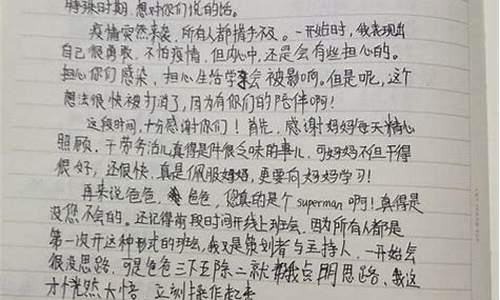 特殊时期，想对你们说的话。
疫情突然来袭，所有人都措手不及。一开始时，我表现出
自己很勇敢，不怕疫情，但内心中，还是会有些担心的。
担心你们感染，担心生活学会被影响。但是呢，这个
想法很快被打消了，因为有你们的陪伴啊！
这段时间，十分感谢你们！首先，感谢妈妈每天精心
照顾，干劳务活儿真得是件很乏味的事儿，可妈妈不但干得
很好，还很快，真是佩服妈妈，更要向妈妈学习！
再来说爸爸，爸爸，您真的是个superman啊！真得是
没您不会的。还记得前段时间开线上班会，因为所有人都是
第一次开这种形式的班会，我又是策划者与主持人，一开始会
很没思路，可是爸爸三下五除二就帮我点明思路，我这
才恍然大悟，立刻操作起来